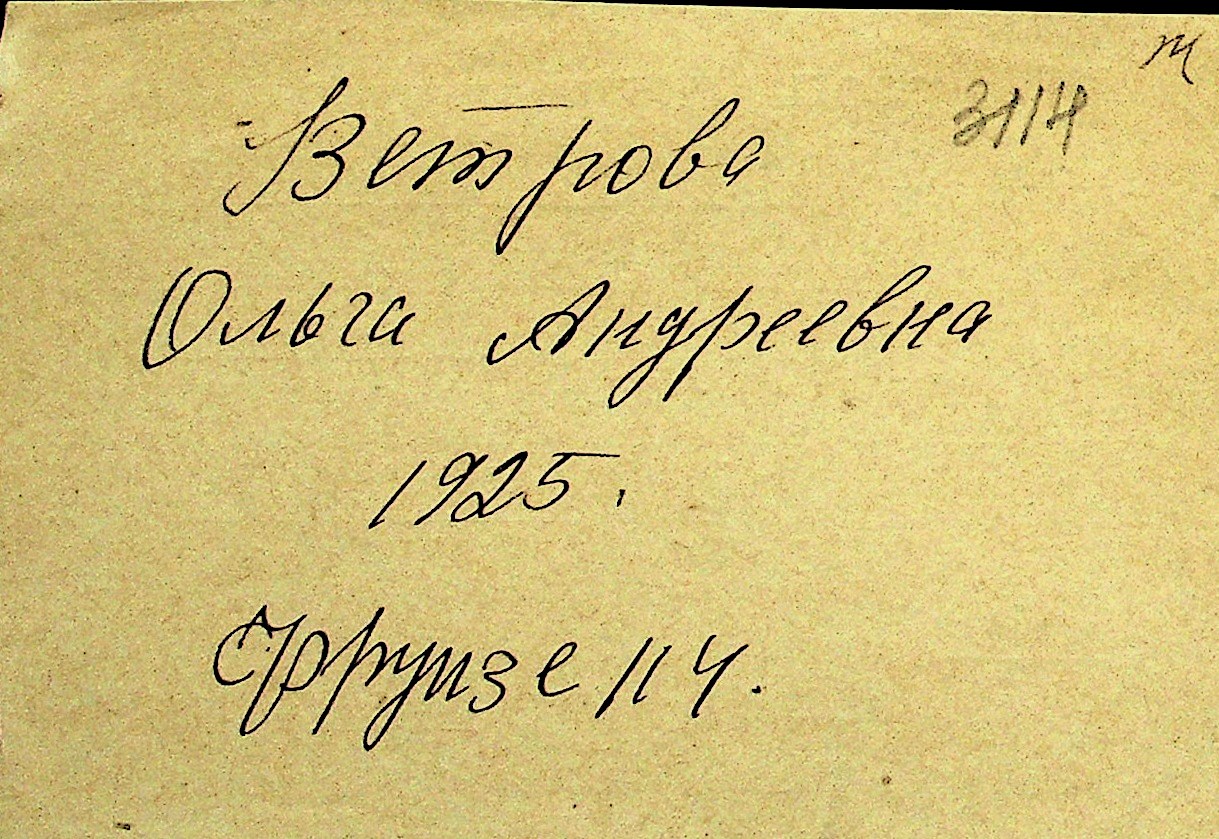 3114
Ветрова
Ольга Андреевна
1925.
Фрунзе 114.